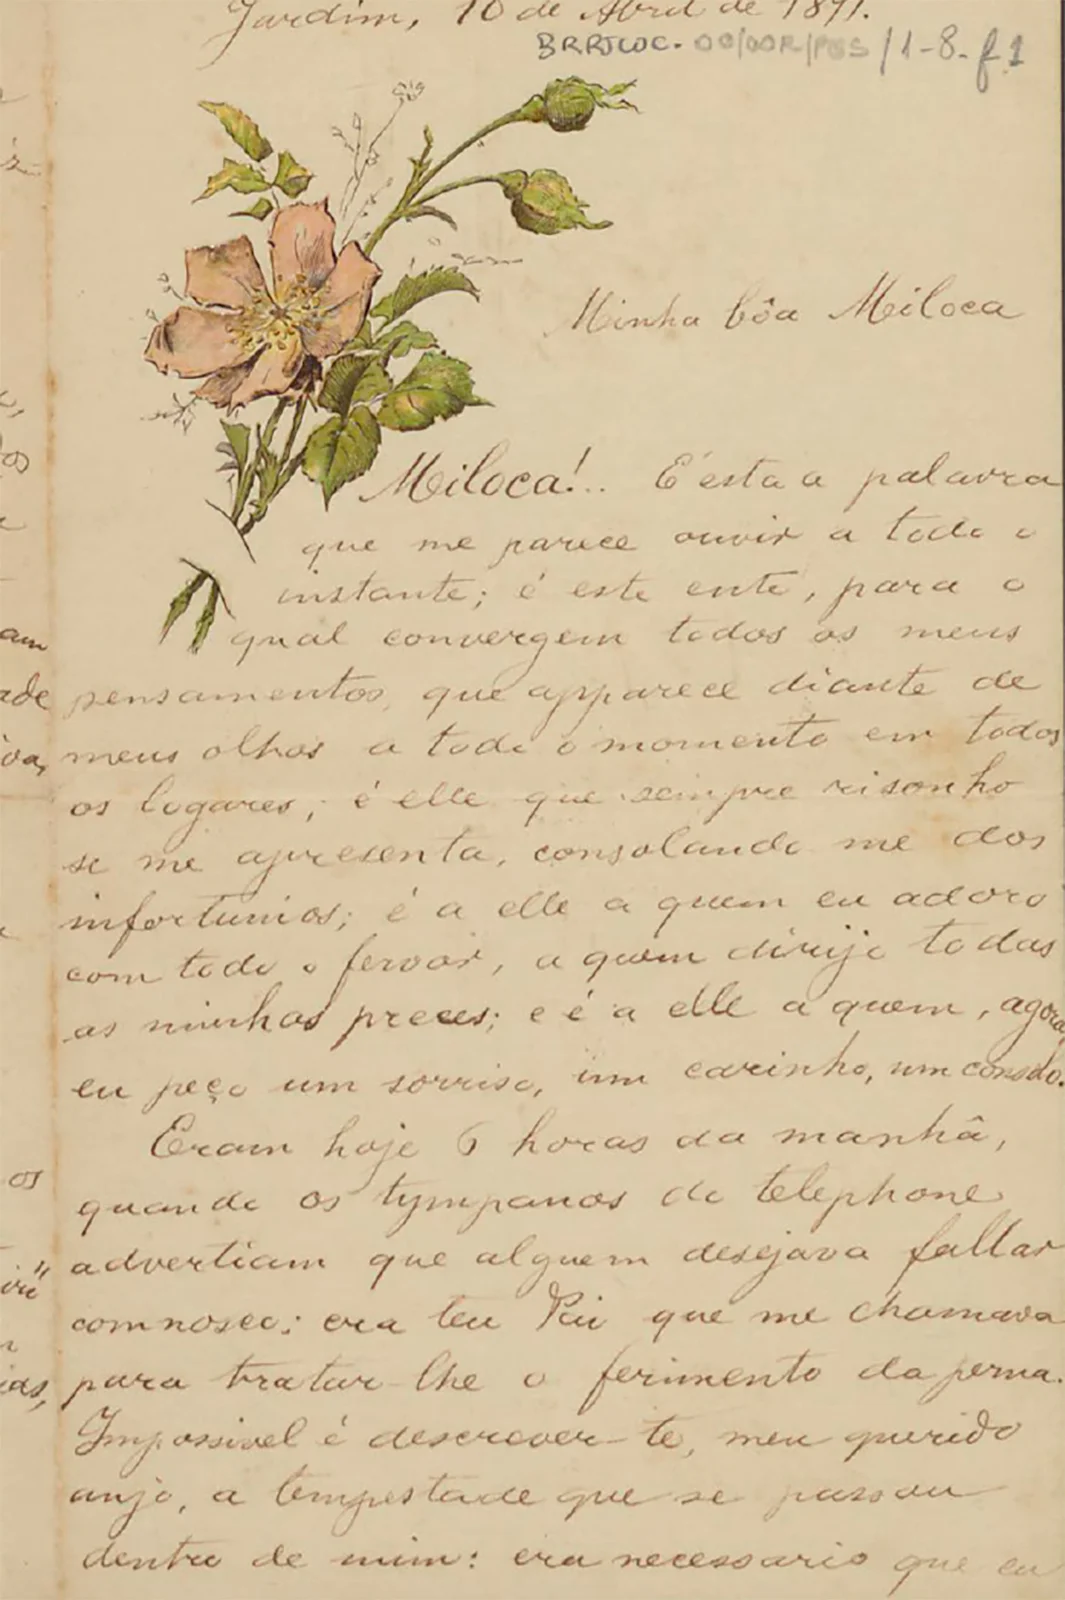 Jardim, 10 de Abril de 1891.
BRRJCOC. 00/00R/PES/1-8. f1
Minha bôa Miloca
Miloca!.. É esta a palavra
que me parece ouvir a todo o
instante; é este ente, para o
qual convergem todos os meus
pensamentos, que apparece diante de
meus olhos a todo o momento em todos
os logares; é elle que sempre risonho
se me apresenta, consolando me dos
infortunios; é a elle a quem eu adoro
com todo o fervor, a quem dirijo todas
as minhas preces; e é a elle a quem, agora,
eu peço um sorriso, um carinho, um consolo.
Eram hoje 6 horas da manhã,
quando os tympanos do telephone
advertiam que alguem desejava fallar
comnosco: era teu Pai que me chamava
para tratar-lhe o ferimento da perna.
Impossivel é descrever-te, meu querido
anjo, a tempestade que se passou
dentro de mim: era necessario que eu